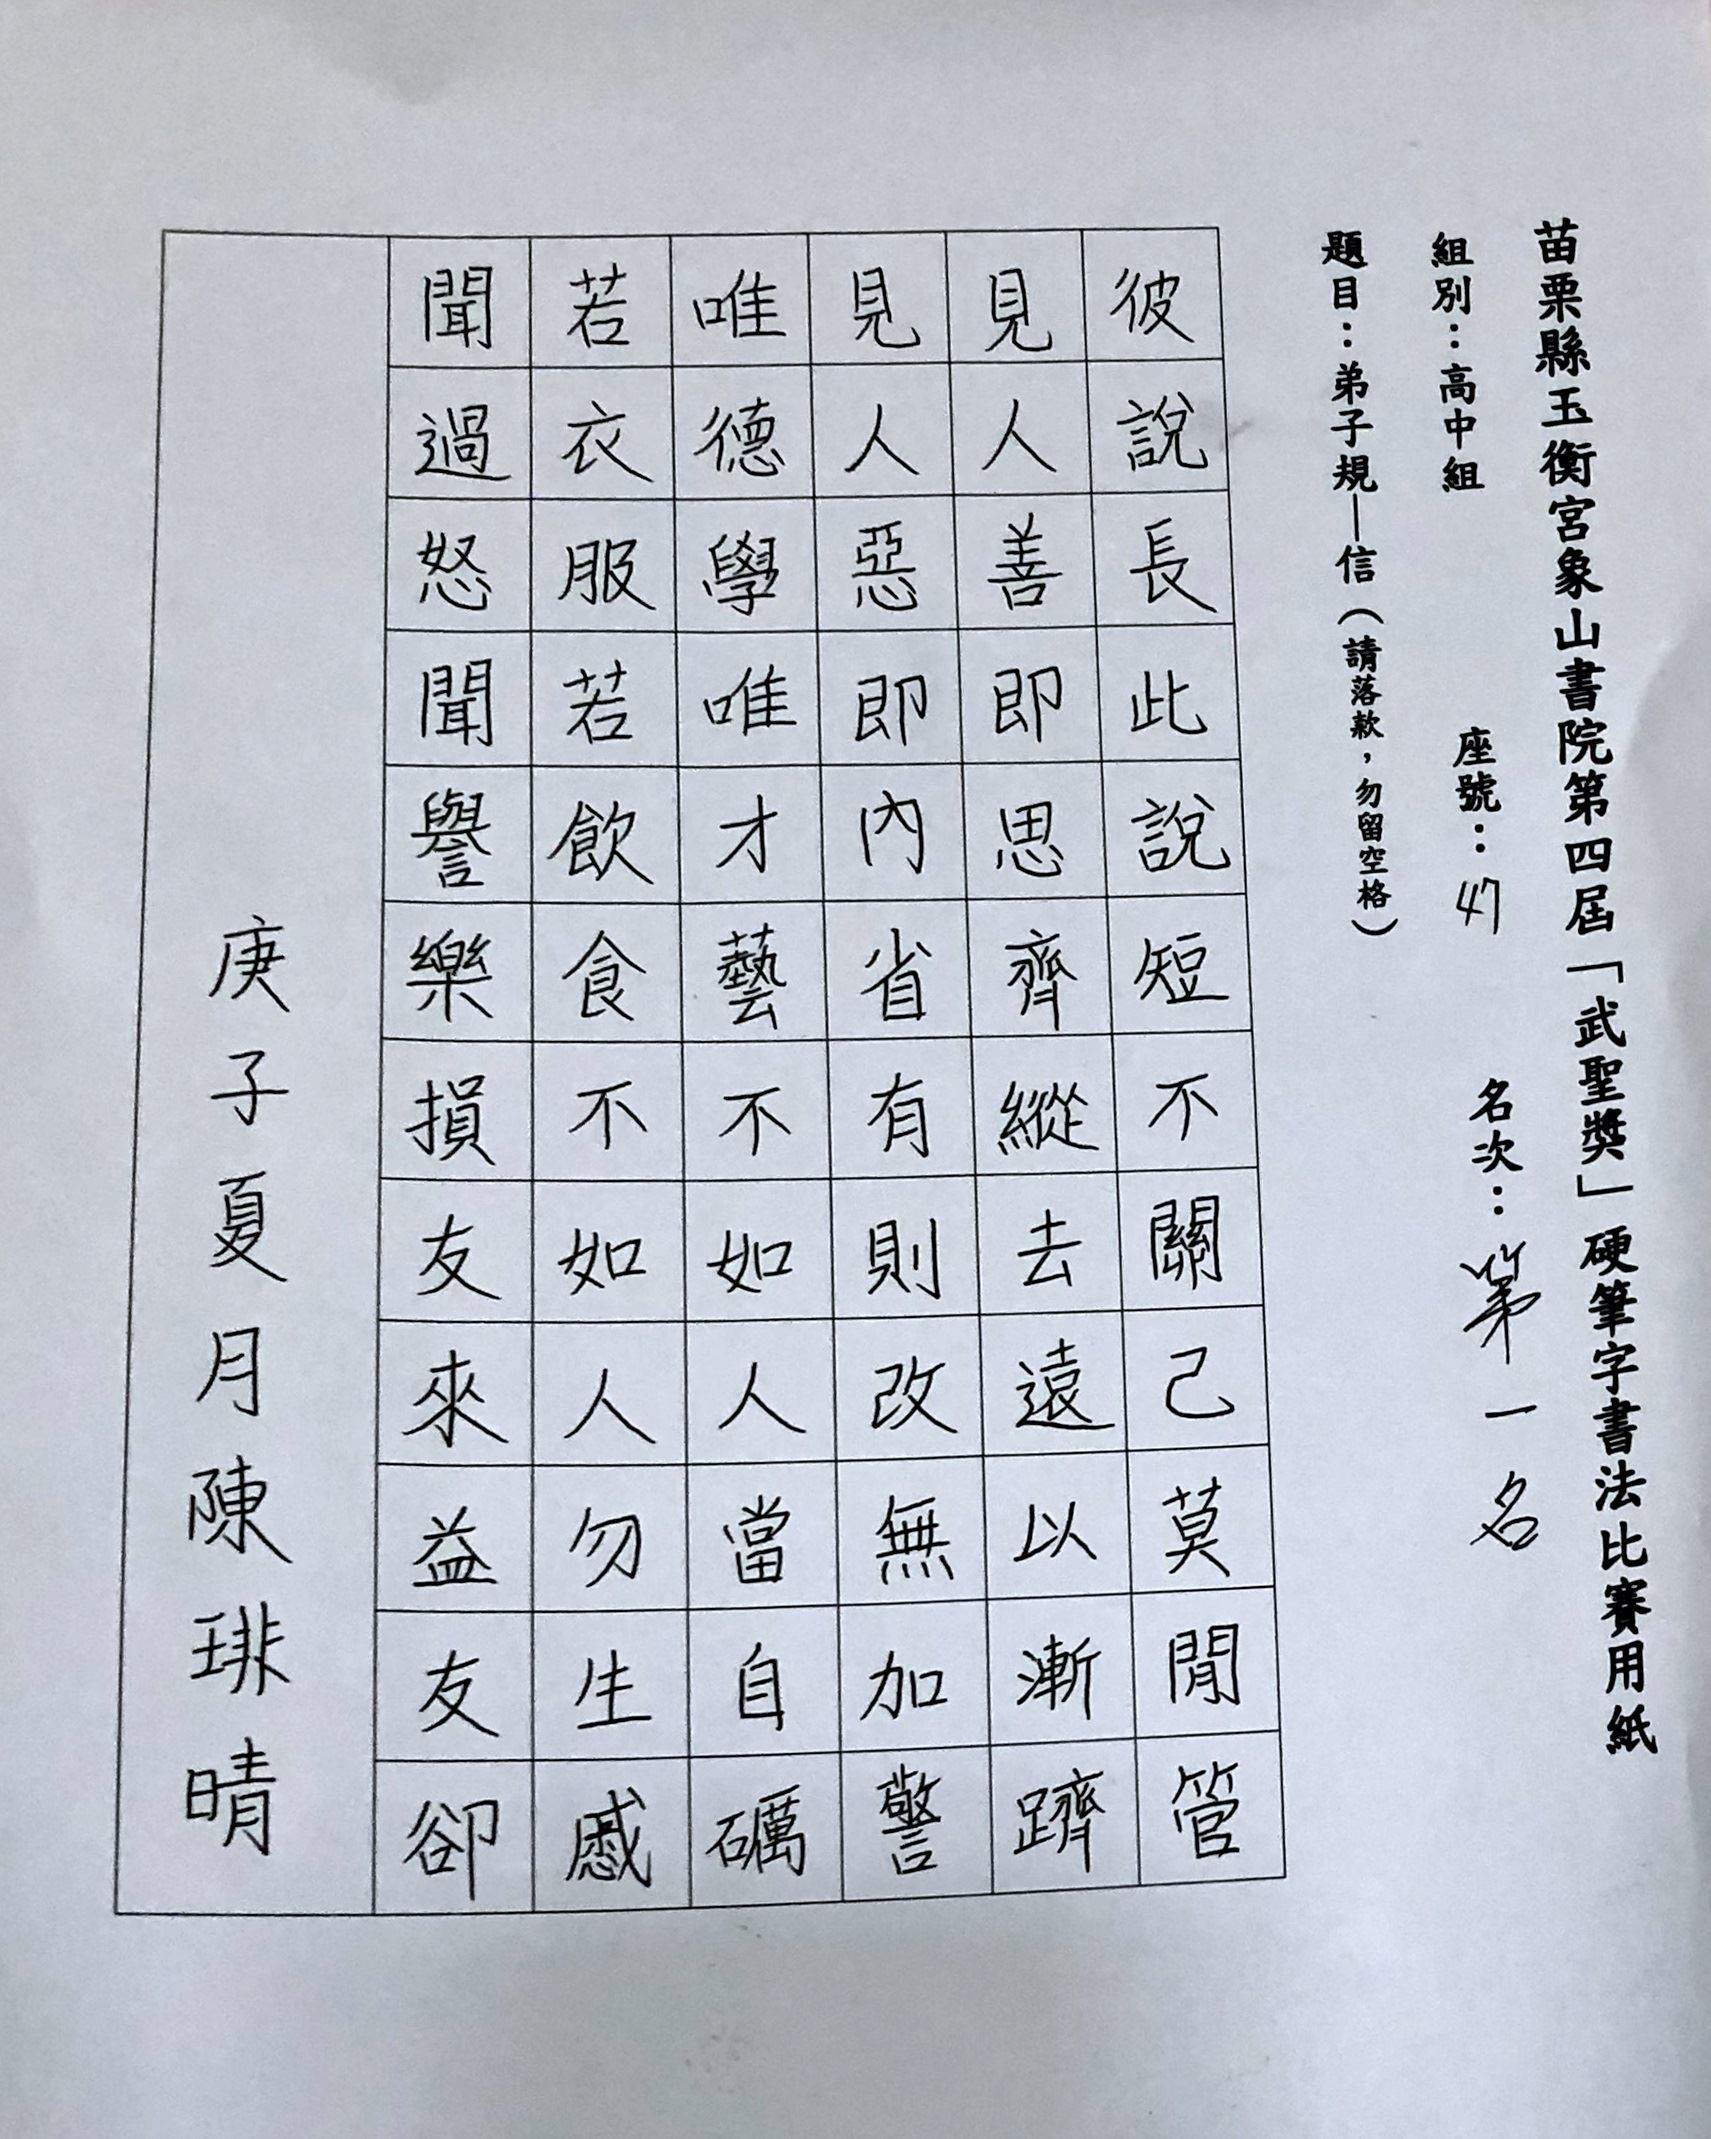 苗栗縣玉衡宮象山書院第四屆「武聖獎」硬筆字書法比賽用紙
組別：高中組　座號：47　名次：第一名
題目：弟子規—信（請落款，勿留空格）
彼說長此說短不關己莫閒管
見人善即思齊縱去遠以漸躋
見人惡即內省有則改無加警
唯德學唯才藝不如人當自礪
若衣服若飲食不如人勿生慼
聞過怒聞譽樂損友來益友卻
庚子夏月陳琲晴